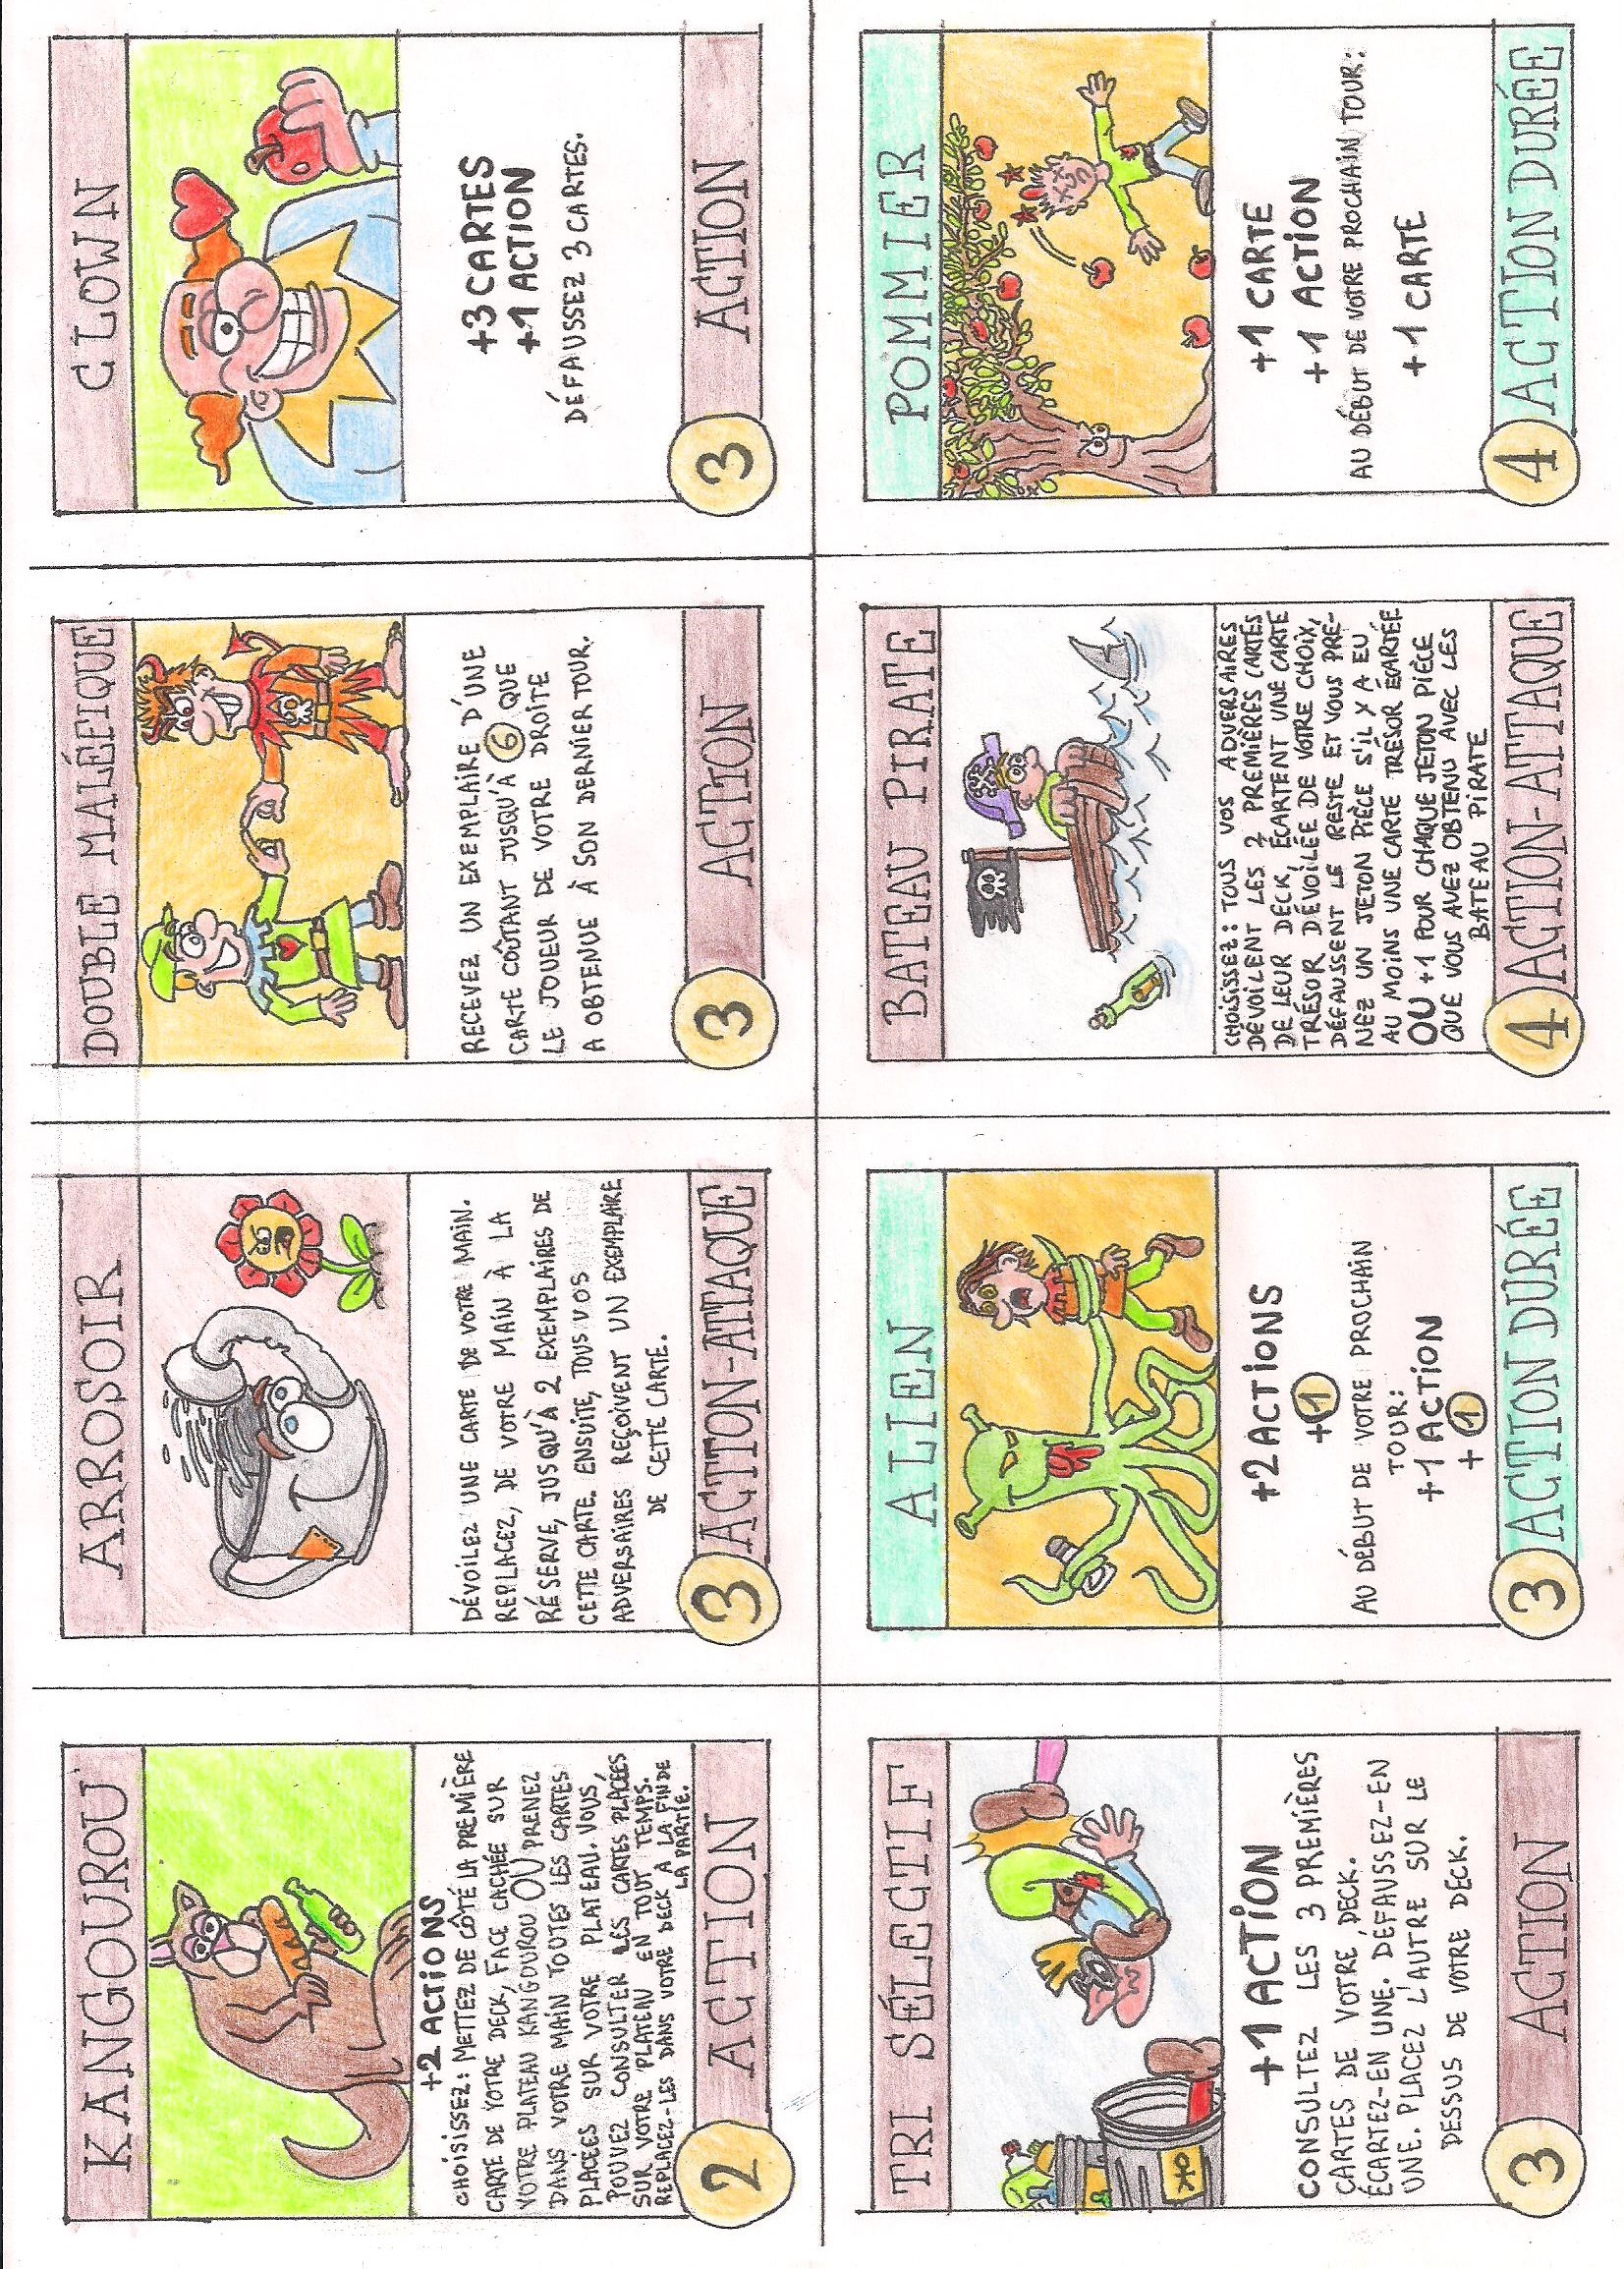 KANGOUROU
+2 ACTIONS
CHOISISSEZ: METTEZ DE CÔTÉ LA PREMIÈRE
CARTE DE VOTRE DECK, FACE CACHÉE SUR
VOTRE PLATEAU KANGOUROU OU PRENEZ
DANS VOTRE MAIN TOUTES LES CARTES
PLACÉES SUR VOTRE PLATEAU. VOUS,
POUVEZ CONSULTER LES CARTES PLACÉES
SUR VOTRE PLATEAU EN TOUT TEMPS.
REPLACEZ-LES DANS VOTRE DECK À LA FIN DE
LA PARTIE.
2 ACTION
ARROSOIR
DÉVOILEZ UNE CARTE DE VOTRE MAIN.
REPLACEZ, DE VOTRE MAIN À LA
RÉSERVE, JUSQU'À 2 EXEMPLAIRES DE
CETTE CARTE. ENSUITE, TOUS VOS
ADVERSAIRES REÇOIVENT UN EXEMPLAIRE
DE CETTE CARTE.
3 ACTION-ATTAQUE
DOUBLE MALÉFIQUE
RECEVEZ UN EXEMPLAIRE D'UNE
CARTE COÛTANT JUSQU'À 6 QUE
LE JOUEUR DE VOTRE DROITE
A OBTENUE À SON DERNIER TOUR.
3 ACTION
CLOWN
+3 CARTES
+1 ACTION
DÉFAUSSEZ 3 CARTES.
3 ACTION
TRI SÉLECTIF
+1 ACTION
CONSULTEZ LES 3 PREMIÈRES
CARTES DE VOTRE DECK.
ÉCARTEZ-EN UNE. DÉFAUSSEZ-EN
UNE. PLACEZ L'AUTRE SUR LE
DESSUS DE VOTRE DECK.
3 ACTION
ALIEN
+2 ACTIONS
+1
AU DÉBUT DE VOTRE PROCHAIN
TOUR:
+1 ACTION
+1
3 ACTION DURÉE
BATEAU PIRATE
CHOISISSEZ: TOUS VOS ADVERSAIRES
DÉVOILENT LES 2 PREMIÈRES CARTES
DE LEUR DECK, ÉCARTENT UNE CARTE
TRÉSOR DÉVOILÉE DE VOTRE CHOIX,
DÉFAUSSENT LE RESTE ET VOUS PRE-
NEZ UN JETON PIÈCE S'IL Y A EU
AU MOINS UNE CARTE TRÉSOR ÉCARTÉE
OU +1 POUR CHAQUE JETON PIÈCE
QUE VOUS AVEZ OBTENU AVEC LES
BATEAU PIRATE
4 ACTION-ATTAQUE
POMMIER
+1 CARTE
+1 ACTION
AU DÉBUT DE VOTRE PROCHAIN TOUR:
+1 CARTE
4 ACTION DURÉE